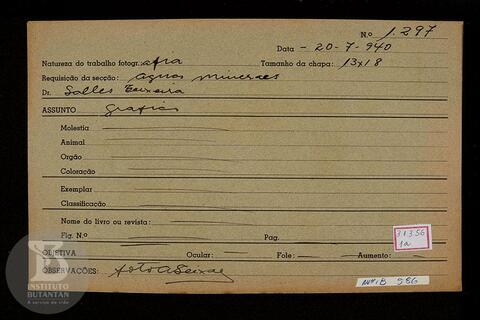 N.º 1.297
Data - 20-7-940
Natureza do trabalho fotogr. afia Tamanho da chapa: 13x18
Requisição da secção: aguas mineraes
Dr. Salles Teixeira
ASSUNTO grafico
Molestia
Animal
Orgão
Coloração
Exemplar
Classificação
Nome do livro ou revista:
Fig. N.º Pag.
31356
1a
OBJETIVA Ocular: Fole: Aumento:
OBSERVAÇÕES: Foto A Seixas
INSTITUTO
BUTANTAN
A serviço da vida